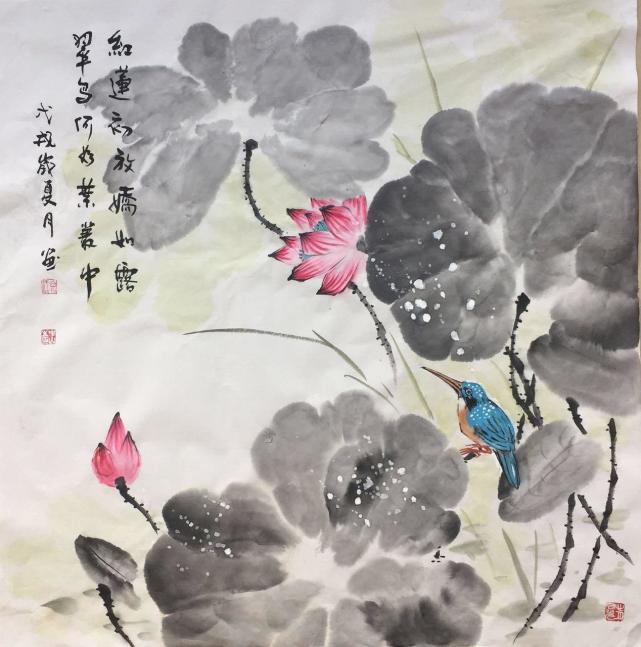 紅蓮初放嬌如露
翠鳥何如葉叢中
戊戌歲夏月画